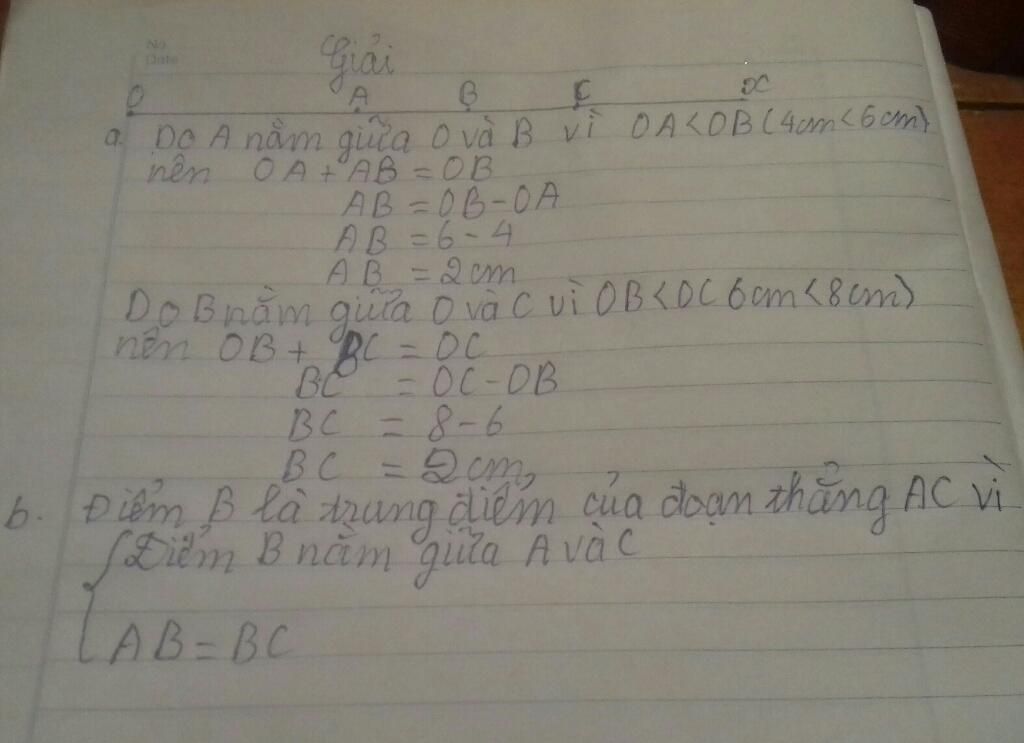 No.
Date
Giải
O A B C x
a. Do A nằm giữa O và B vì OA < OB (4cm < 6cm)
nên OA + AB = OB
AB = OB - OA
AB = 6 - 4
AB = 2cm
Do B nằm giữa O và C vì OB < OC 6cm < 8cm)
nên OB + BC = OC
BC = OC - OB
BC = 8 - 6
BC = 2cm,
b. Điểm B là trung điểm của đoạn thẳng AC vì
{ Điểm B nằm giữa A và C
AB = BC